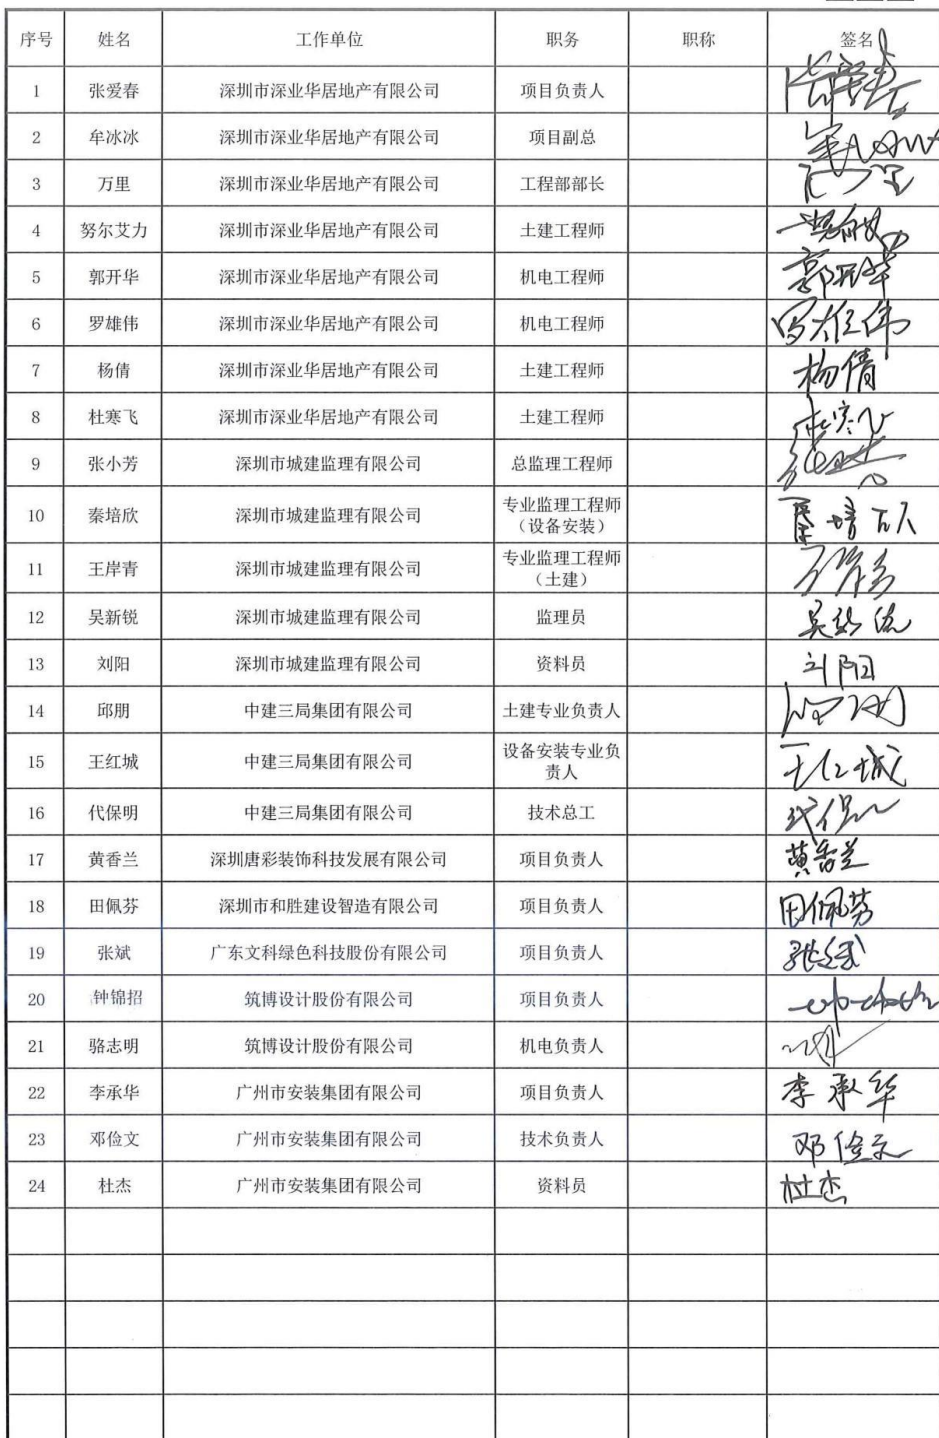 序号 姓名 工作单位 职务 职称 签名
1 张爱春 深圳市深业华居地产有限公司 项目负责人
2 牟冰冰 深圳市深业华居地产有限公司 项目副总
3 万里 深圳市深业华居地产有限公司 工程部部长 万里
4 努尔艾力 深圳市深业华居地产有限公司 土建工程师
5 郭开华 深圳市深业华居地产有限公司 机电工程师 郭开华
6 罗雄伟 深圳市深业华居地产有限公司 机电工程师 罗雄伟
7 杨倩 深圳市深业华居地产有限公司 土建工程师 杨倩
8 杜寒飞 深圳市深业华居地产有限公司 土建工程师 杜寒飞
9 张小芳 深圳市城建监理有限公司 总监理工程师
10 秦培欣 深圳市城建监理有限公司 专业监理工程师
（设备安装） 秦培欣
11 王岸青 深圳市城建监理有限公司 专业监理工程师
（土建） 王岸青
12 吴新锐 深圳市城建监理有限公司 监理员 吴新锐
13 刘阳 深圳市城建监理有限公司 资料员 刘阳
14 邱朋 中建三局集团有限公司 土建专业负责人
15 王红城 中建三局集团有限公司 设备安装专业负
责人 王红城
16 代保明 中建三局集团有限公司 技术总工 代保明
17 黄香兰 深圳唐彩装饰科技发展有限公司 项目负责人 黄香兰
18 田佩芬 深圳市和胜建设智造有限公司 项目负责人 田佩芬
19 张斌 广东文科绿色科技股份有限公司 项目负责人 张斌
20 钟锦招 筑博设计股份有限公司 项目负责人
21 骆志明 筑博设计股份有限公司 机电负责人
22 李承华 广州市安装集团有限公司 项目负责人 李承华
23 邓俭文 广州市安装集团有限公司 技术负责人 邓俭文
24 杜杰 广州市安装集团有限公司 资料员 杜杰